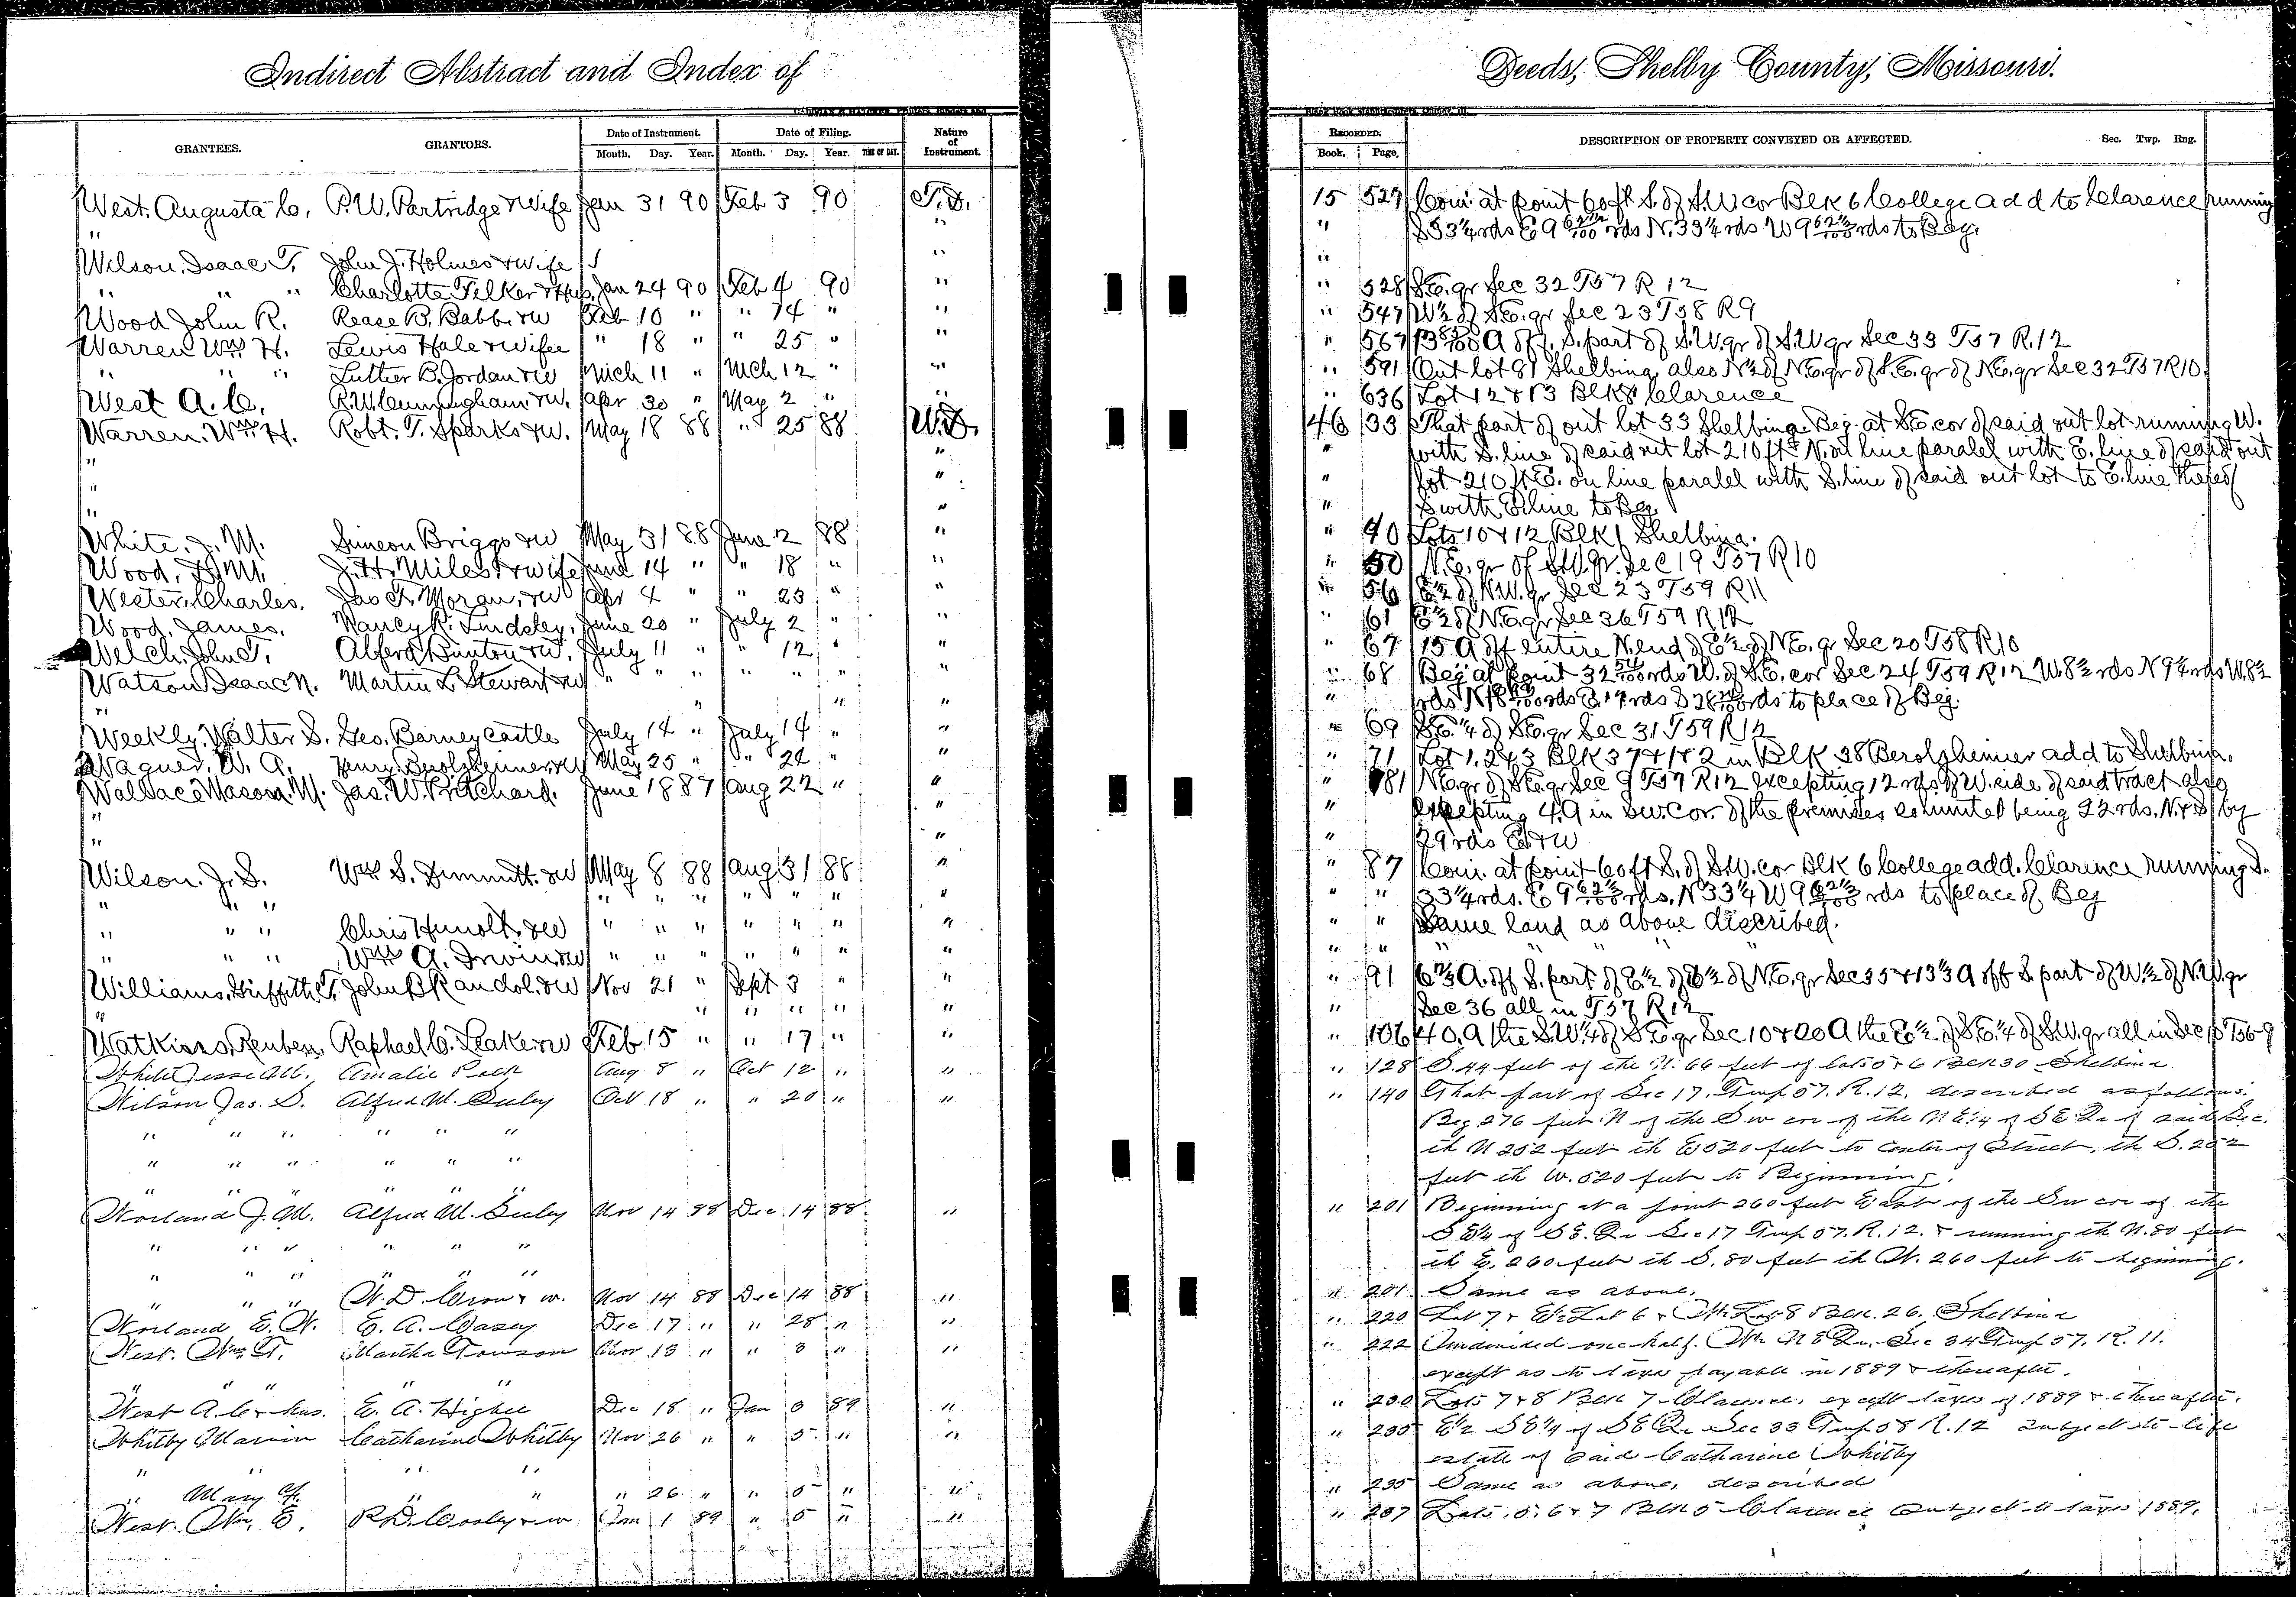 Indirect Abstract and Index of Deeds, Shelby County, Missouri.
GRANTEES. GRANTORS. Date of Instrument. Month. Day. Year. Date of Filing. Month. Day. Year. TIME OF DAY. Nature of Instrument. RECORDED. Book. Page. DESCRIPTION OF PROPERTY CONVEYED OR AFFECTED. Sec. Twp. Rng.
West, Augusta C, P.W. Partridge & Wife Jan 31 90 Feb 3 90 T.D. 15 527 Com. at point 60 ft S. of S.W cor Blk 6 College add to Clarence running
" " " S 33 1/4 rds E 9 62 1/2/100 rds N. 33 1/4 rds W 9 62 1/2/100 rds to Beg.
Wilson, Isaac T, John J. Holmes & wife " "
" " " Charlotte Felker & Hus. Jan 24 90 Feb 4 90 " " 528 S.E. qr Sec 32 T57 R 12
Wood John R. Rease B. Babb & w Feb 10 " " 14 " " " 547 W 1/2 of S.E. qr Sec 23 T58 R9
Warren Wm H. Lewis Hale & wife " 18 " " 25 " " " 567 of S.W. qr of S.W qr Sec 33 T57 R.12
" " " Luther B. Jordan & w Mch 11 " Mch 12 " " " 591 Out lot 81 Shelbina also N 1/2 of N.E. qr of S.E. qr of N.E. qr Sec 32 T57 R10
West A. C. R.W. Cunningham & w. Apr 30 " May 2 " " " 636 Lot 12 & 13 Blk 8 Clarence
Warren, Wm H. Robt. T. Sparks & w. May 18 88 " 25 88 W.D. 46 33 That part of out lot 33 Shelbina Beg. at S.E. cor of said out lot running W.
" " " with S. line of said out lot 210 ft N. on line paralel with E. line of said out
" " " lot 210 ft E. on line paralel with S. line of said out lot to E. line thereof
" " S with E line to Beg
White, J. M. Simeon Briggs & w May 31 88 June 2 88 " " 40 Lots 10 & 12 Blk 1 Shelbina.
Wood, J. H. Miles & wife June 14 " " 18 " " " 50 N.E. qr of S.W. qr. Sec 19 T57 R10
Wester, Charles. Jas F. Moran, & w Apr 4 " " 23 " " " 56 E 1/2 of N.W. qr Sec 23 T59 R11
Wood, James, Nancy K. Lindsley, June 20 " July 2 " " " 61 E 1/2 of N.E. qr Sec 36 T59 R12
Welch, John T. Alferd Bunton & w. July 11 " " 12 " " " 67 15 A off entire N. end of E 1/2 of N.E. qr Sec 20 T58 R10
Watson Isaac N. Martin L Stewart & w " " " " " " " " 68 Beg at point 32 54/100 rds W. of S.E. cor Sec 24 T59 R12 W. 8 1/2 rds N 9 1/2 rds W. 8 1/2
" " " " " rds E. 17 rds S 28 rds to place of Beg.
Weekly, Walter S. Geo. Barneycastle July 14 " July 14 " " " 69 S.E. 1/4 of S.E. qr Sec 31 T59 R12
Wagner, W. A. Henry Berolzheimer & w May 25 " " 22 " " " 71 Lot 1, 2 & 3 Blk 37 & 1 & 2 in Blk 38 Berolzheimer add to Shelbina.
Wallace Mason M. Jas. W. Pritchard. June 18 87 Aug 22 " " " 81 N.E. qr of S.E. qr Sec 9 T57 R12 excepting 12 rds of W. side of said tract also
" " " excepting 4 A in S.W. cor. of the premises being 22 rds. N & S by
" " " 29 rds E & W
Wilson, J. S. Wm S. Dimmitt & w May 8 88 Aug 31 88 " " 87 Com. at point 60 ft S. of S.W. cor Blk 6 College add. Clarence running S.
" " " " " " " " " " " " 33 1/4 rds. E 9 62 1/2/100 rds. N 33 1/4 W 9 62 1/2/100 rds to place of Beg
" " " Chris Hunolt & w " " " " " " " " " Same land as above discribed.
" " " Wm A. Irwin & w " " " " " " " " " " " "
Williams, Griffith T, John B Randol. & w Nov 21 " Sept 3 " " " 91 6 2/3 A. off S. part of E 1/2 of E 1/2 of N.E. qr Sec 35 & 13 1/3 A off S. part of W 1/2 of N.W. qr
" " " " " " " Sec 36 all in T57 R12
Watkins, Reuben, Raphael C. Leake & w Feb 15 " " 17 " " " 106 40. A the S.W. 1/4 of S.E. qr Sec 10 & 20 A the E 1/2 of S.E. 1/4 of S.W. qr all in Sec 10 T56-9
White Jesse M., Amalie Pack Aug. 8 " Oct 12 " " " 128 S. 44 feet of the N. 66 feet of lots 5 & 6 Blk 30 Shelbina
Wilson Jas. S. Alfred M. Seeley Oct. 18 " " 20 " " " 140 That part of Sec 17, Twp 57. R. 12, described as follows:
" " " " " " Beg 276 feet N of the S w cor of the N E 1/4 of S E Qr of said Sec.
" " " " " " th N 252 feet th E 520 feet to center of Street, th S. 252
" " " " feet th W. 520 feet to Beginning.
Worland J. M. Alfred M. Seeley Nov 14 88 Dec. 14 88 " " 201 Beginning at a point 260 feet East of the Sw cor of the
" " " " " " S E 1/4 of S E. Qr Sec 17 Twp 57. R. 12. & running th N. 80 feet
" " " " " " th E. 260 feet th S. 80 feet th W. 260 feet to beginning.
" " " W. D. Crow & w. Nov 14 88 Dec 14 88 " " 201 Same as above.
Worland E. W. E. A. Casey Dec 17 " " 28 " " " 220 Lot 7 & Lot 6 & Lot 8 Blk. 26, Shelbina
West. Wm T. Martha Towson Nov 13 " " 3 " " " 222 Undivided one half. N E Qr. Sec 34 Twp 57. R. 11.
" " " " except as to taxes payable in 1889 & thereafter.
West A. C. & hus. E. A. Higbee Dec 18 " Jan 3 89 " " 230 Lots 7 & 8 Blk 7 Clarence, except taxes of 1889 & thereafter.
Whitby Marvin Catharine Whitby Nov 26 " " 5 " " " 235 E 1/2 S E 1/4 of S E Qr Sec 33 Twp 58 R. 12 subject to life
" " " " estate of said Catharine Whitby
" Mary " " " 26 " " 5 " " " 235 Same as above, described
West. Wm. E. R D. Cooley & w Jan 1 89 " 5 " " " 237 Lots. 5. 6 & 7 Blk 5 Clarence Subject to taxes 1889.